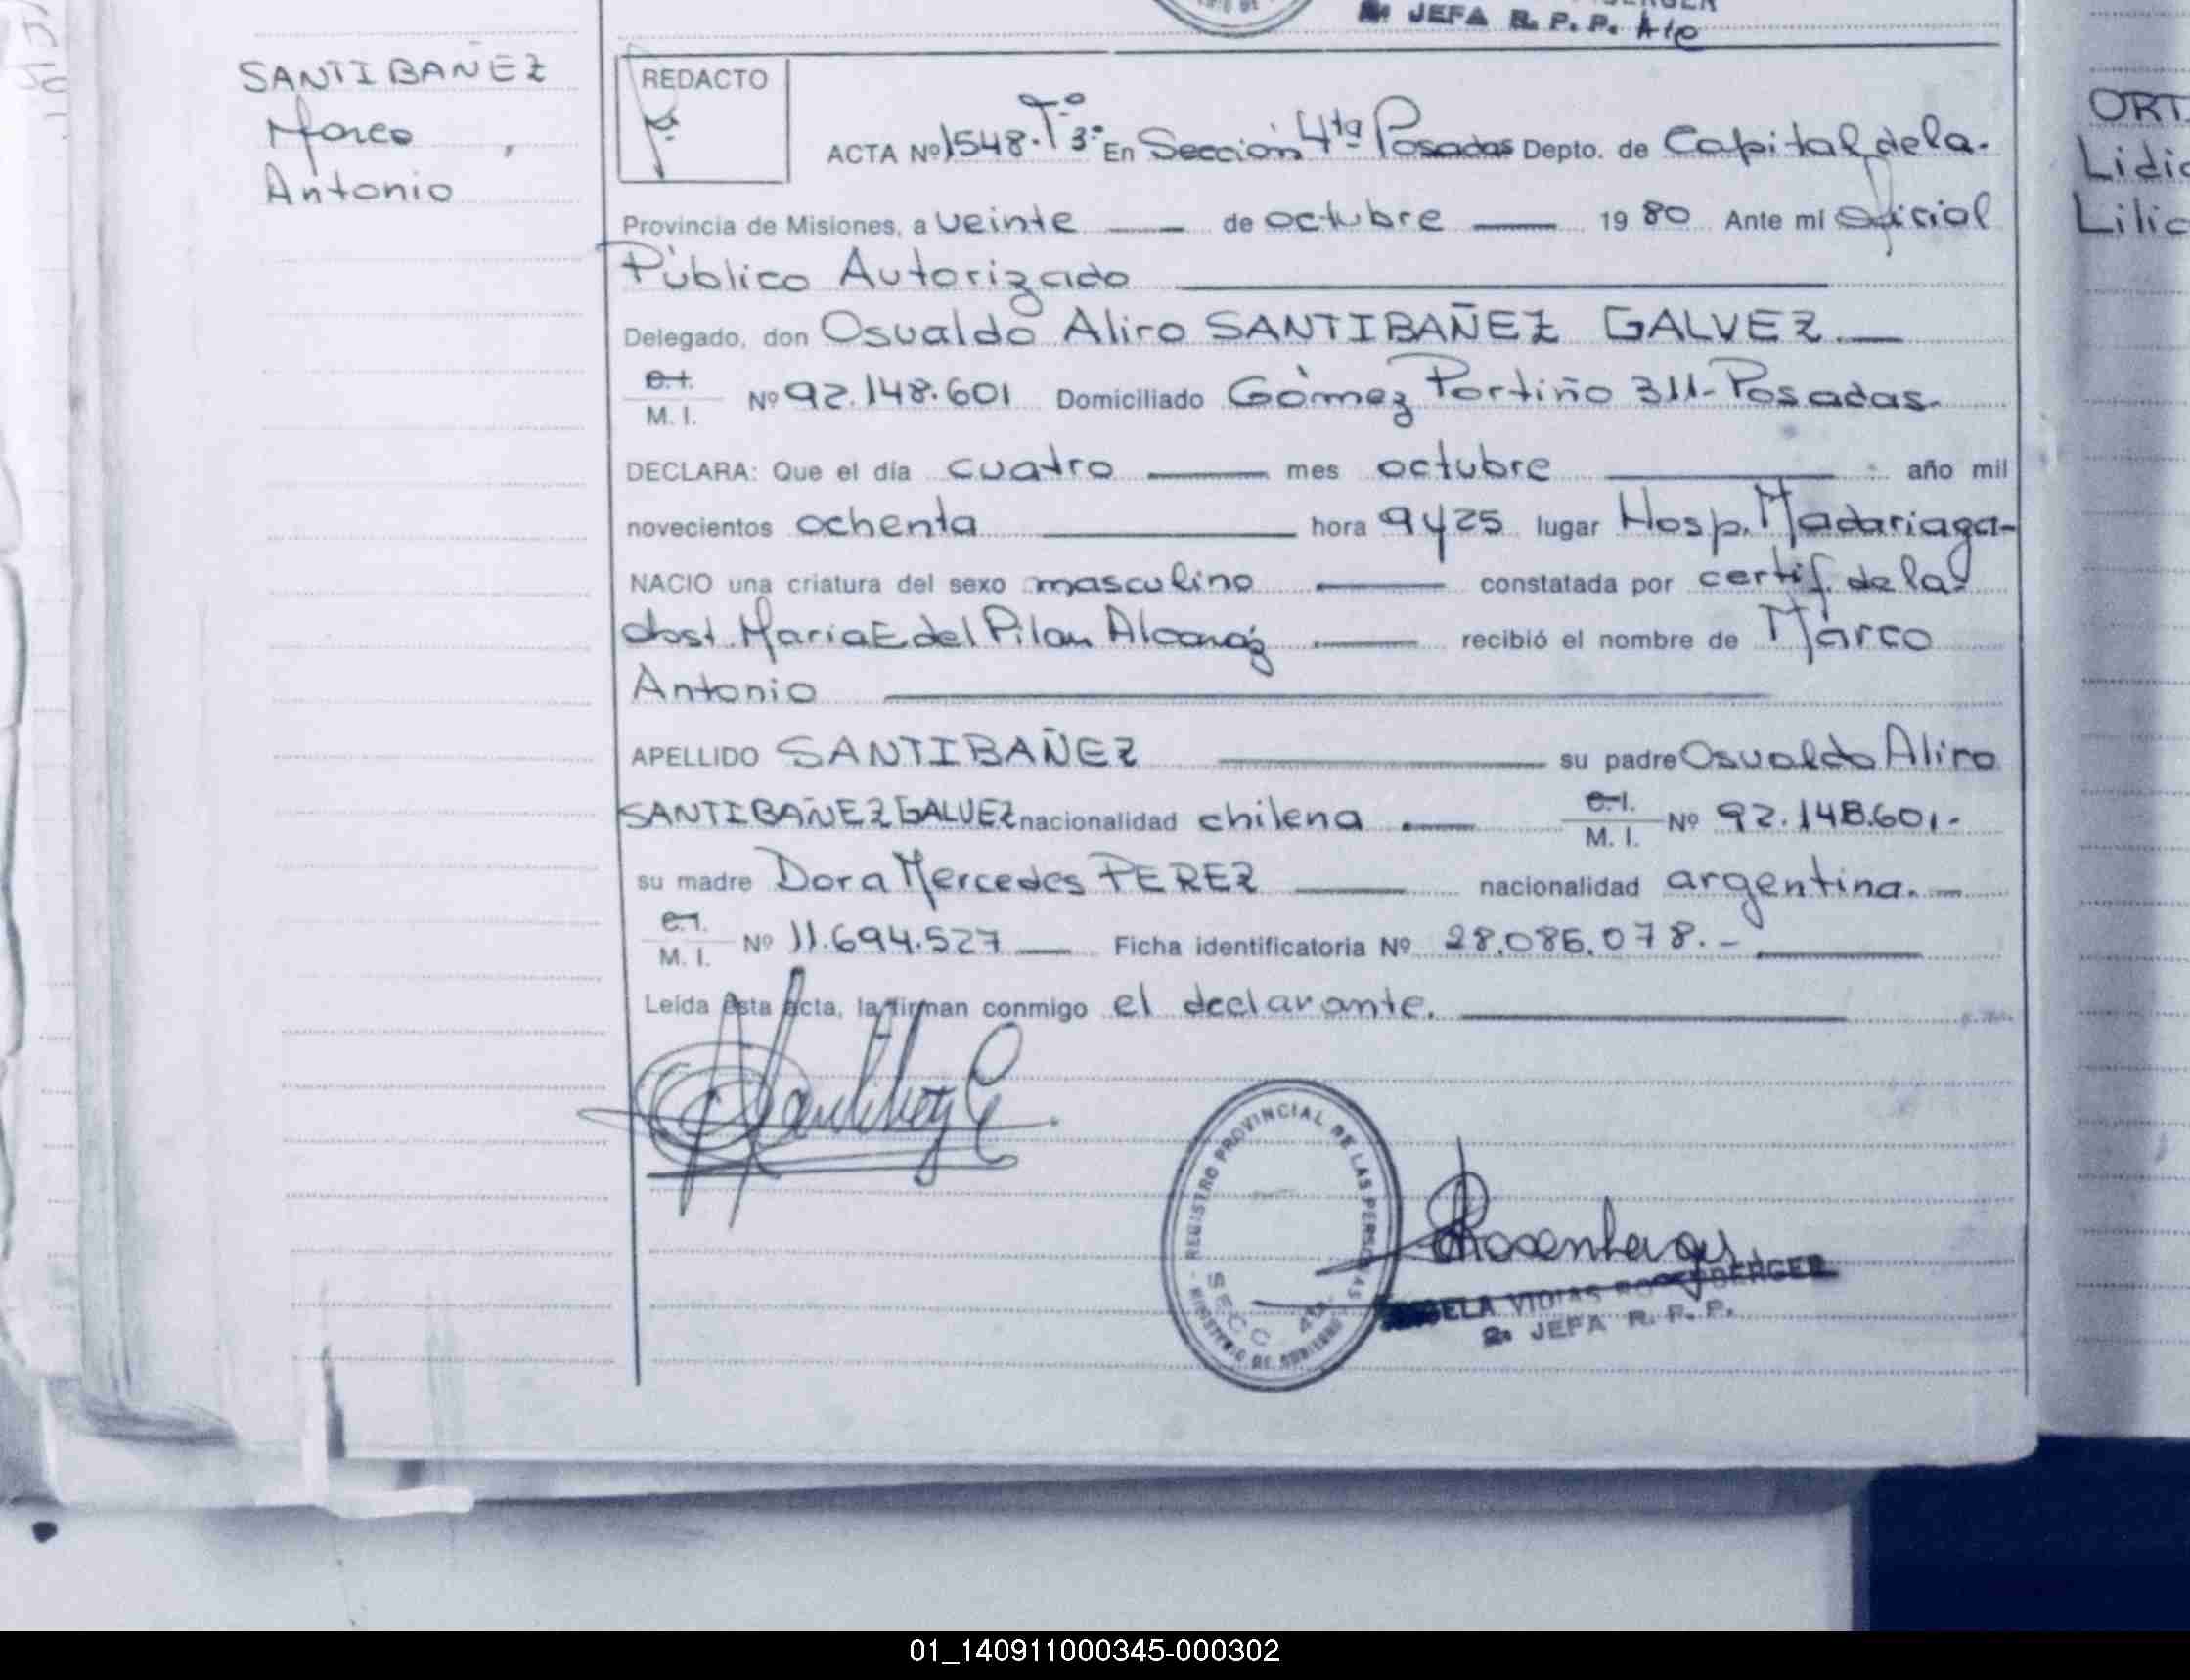 JEFA R. P. P. Ale
SANTIBAÑEZ
Marco
Antonio
REDACTO
ACTA Nº 1548. Tº 3º En Sección 4ta Posadas Depto. de Capital de la.
Provincia de Misiones, a veinte de octubre 1980 Ante mí Oficial
Público Autorizado
Delegado, don Osvaldo Aliro SANTIBAÑEZ GALVEZ.
C.I.
M. I. Nº 92.148.601 Domiciliado Gómez Portiño 311-Posadas.
DECLARA: Que el día cuatro mes octubre año mil
novecientos ochenta hora 9 y 25 lugar Hosp. Madariaga-
NACIO una criatura del sexo masculino constatada por certif. de la
obst. María E del Pilar Alcaraz recibió el nombre de Marco
Antonio
APELLIDO SANTIBAÑEZ su padre Osvaldo Aliro
SANTIBAÑEZ GALVEZ nacionalidad chilena C.I.
M. I. Nº 92.148.601.-
su madre Dora Mercedes PEREZ nacionalidad argentina.
C.I.
M. I. Nº 11.694.527 Ficha identificatoria Nº 28.086.078.-
Leída esta acta, la firman conmigo el declarante.
REGISTRO PROVINCIAL DE LAS PERSONAS
SECC 4ta
MINISTERIO DE GOBIERNO
ROSENBERGER
JEFA R. P. P.
ORT
Lidi
Lili
01_140911000345-000302